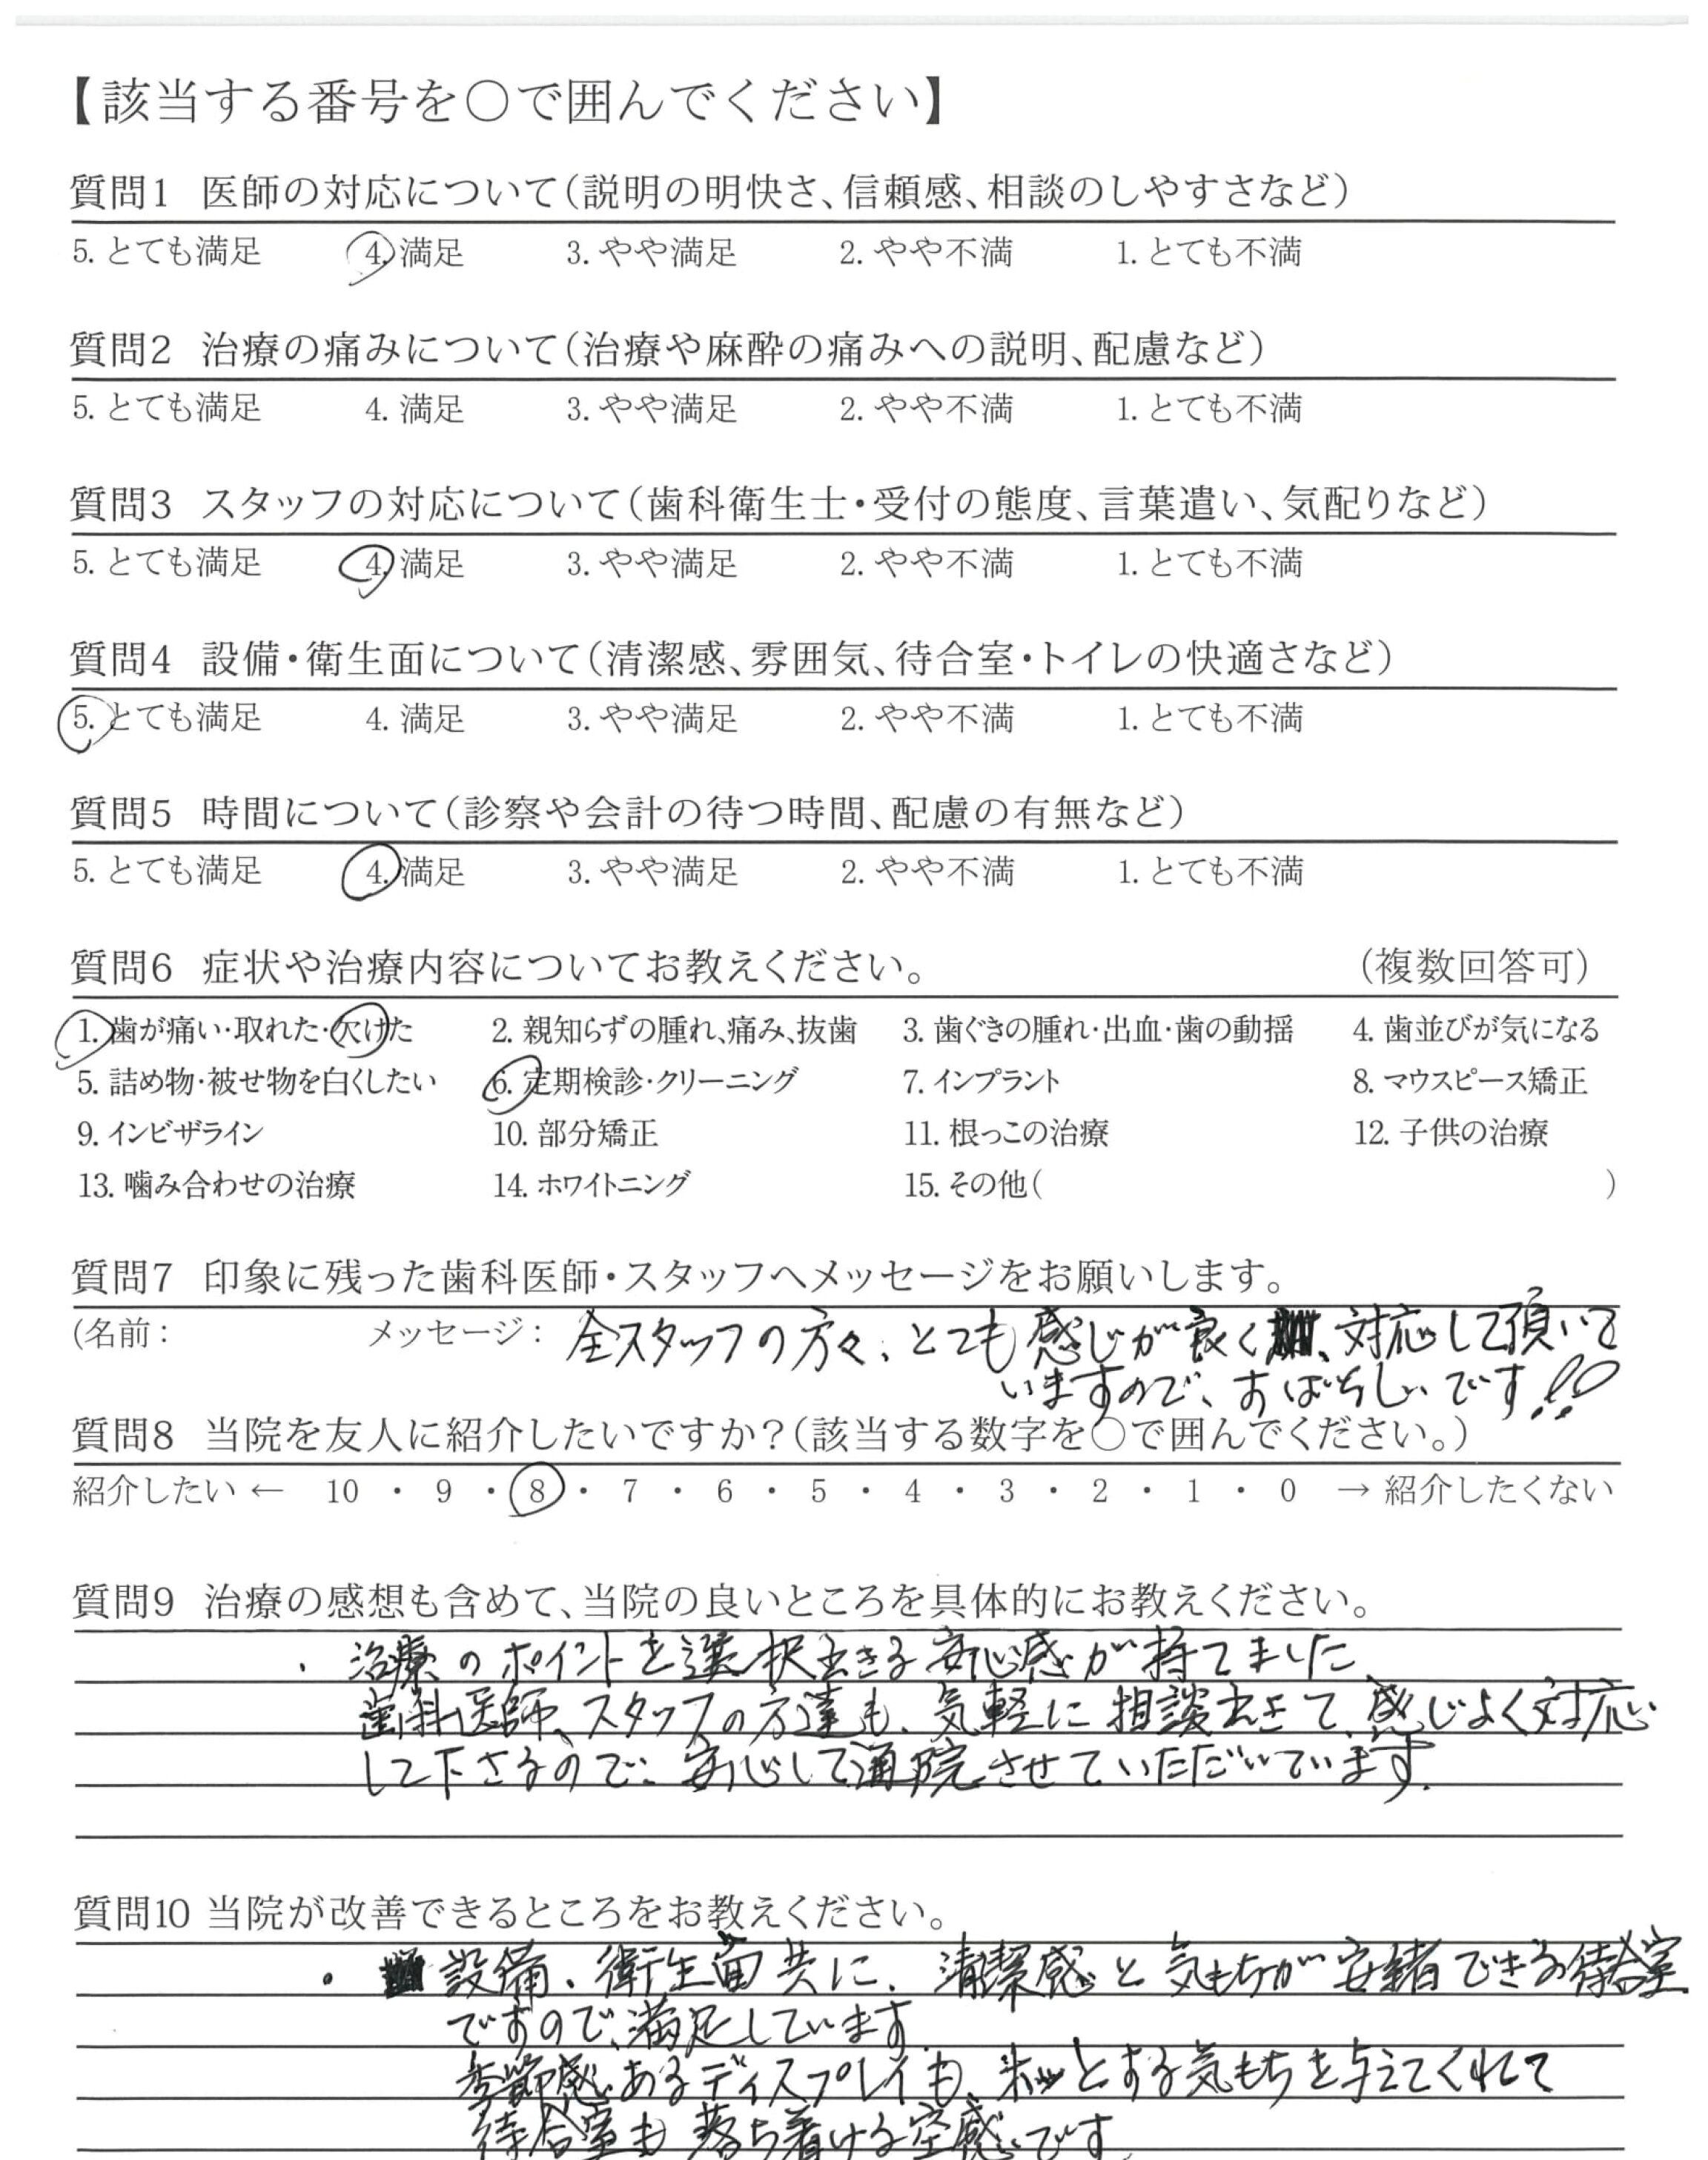 【該当する番号を○で囲んでください】
質問1 医師の対応について(説明の明快さ、信頼感、相談のしやすさなど)
5. とても満足 4. 満足 3. やや満足 2. やや不満 1. とても不満
質問2 治療の痛みについて(治療や麻酔の痛みへの説明、配慮など)
5. とても満足 4. 満足 3. やや満足 2. やや不満 1. とても不満
質問3 スタッフの対応について(歯科衛生士・受付の態度、言葉遣い、気配りなど)
5. とても満足 4. 満足 3. やや満足 2. やや不満 1. とても不満
質問4 設備・衛生面について(清潔感、雰囲気、待合室・トイレの快適さなど)
5. とても満足 4. 満足 3. やや満足 2. やや不満 1. とても不満
質問5 時間について(診察や会計の待つ時間、配慮の有無など)
5. とても満足 4. 満足 3. やや満足 2. やや不満 1. とても不満
質問6 症状や治療内容についてお教えください。 (複数回答可)
1. 歯が痛い・取れた・欠けた 2. 親知らずの腫れ、痛み、抜歯 3. 歯ぐきの腫れ・出血・歯の動揺 4. 歯並びが気になる
5. 詰め物・被せ物を白くしたい 6. 定期検診・クリーニング 7. インプラント 8. マウスピース矯正
9. インビザライン 10. 部分矯正 11. 根っこの治療 12. 子供の治療
13. 噛み合わせの治療 14. ホワイトニング 15. その他( )
質問7 印象に残った歯科医師・スタッフへメッセージをお願いします。
(名前： メッセージ： 全スタッフの方々、とても感じが良く、対応して頂いて
いますので、すばらしいです!!
質問8 当院を友人に紹介したいですか?(該当する数字を○で囲んでください。)
紹介したい ← 10 ・ 9 ・ 8 ・ 7 ・ 6 ・ 5 ・ 4 ・ 3 ・ 2 ・ 1 ・ 0 → 紹介したくない
質問9 治療の感想も含めて、当院の良いところを具体的にお教えください。
・ 治療のポイントを選択出きる安心感が持てました
歯科医師、スタッフの方達も、気軽に相談出きて、感じよく対応
して下さるので、安心して通院させていただいています.
質問10 当院が改善できるところをお教えください。
・ 設備、衛生面共に、清潔感と気もちが安緒できる待合室
ですので、満足しています.
季節感あるディスプレイも、ホッとする気もちを与えてくれて
待合室も落ち着ける空感です.